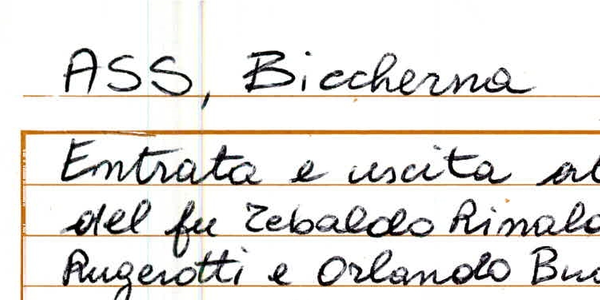 ASS, Biccherna
Entrata e uscita
del fu Tebaldo Rinaldo
Rugerotti e Orlando